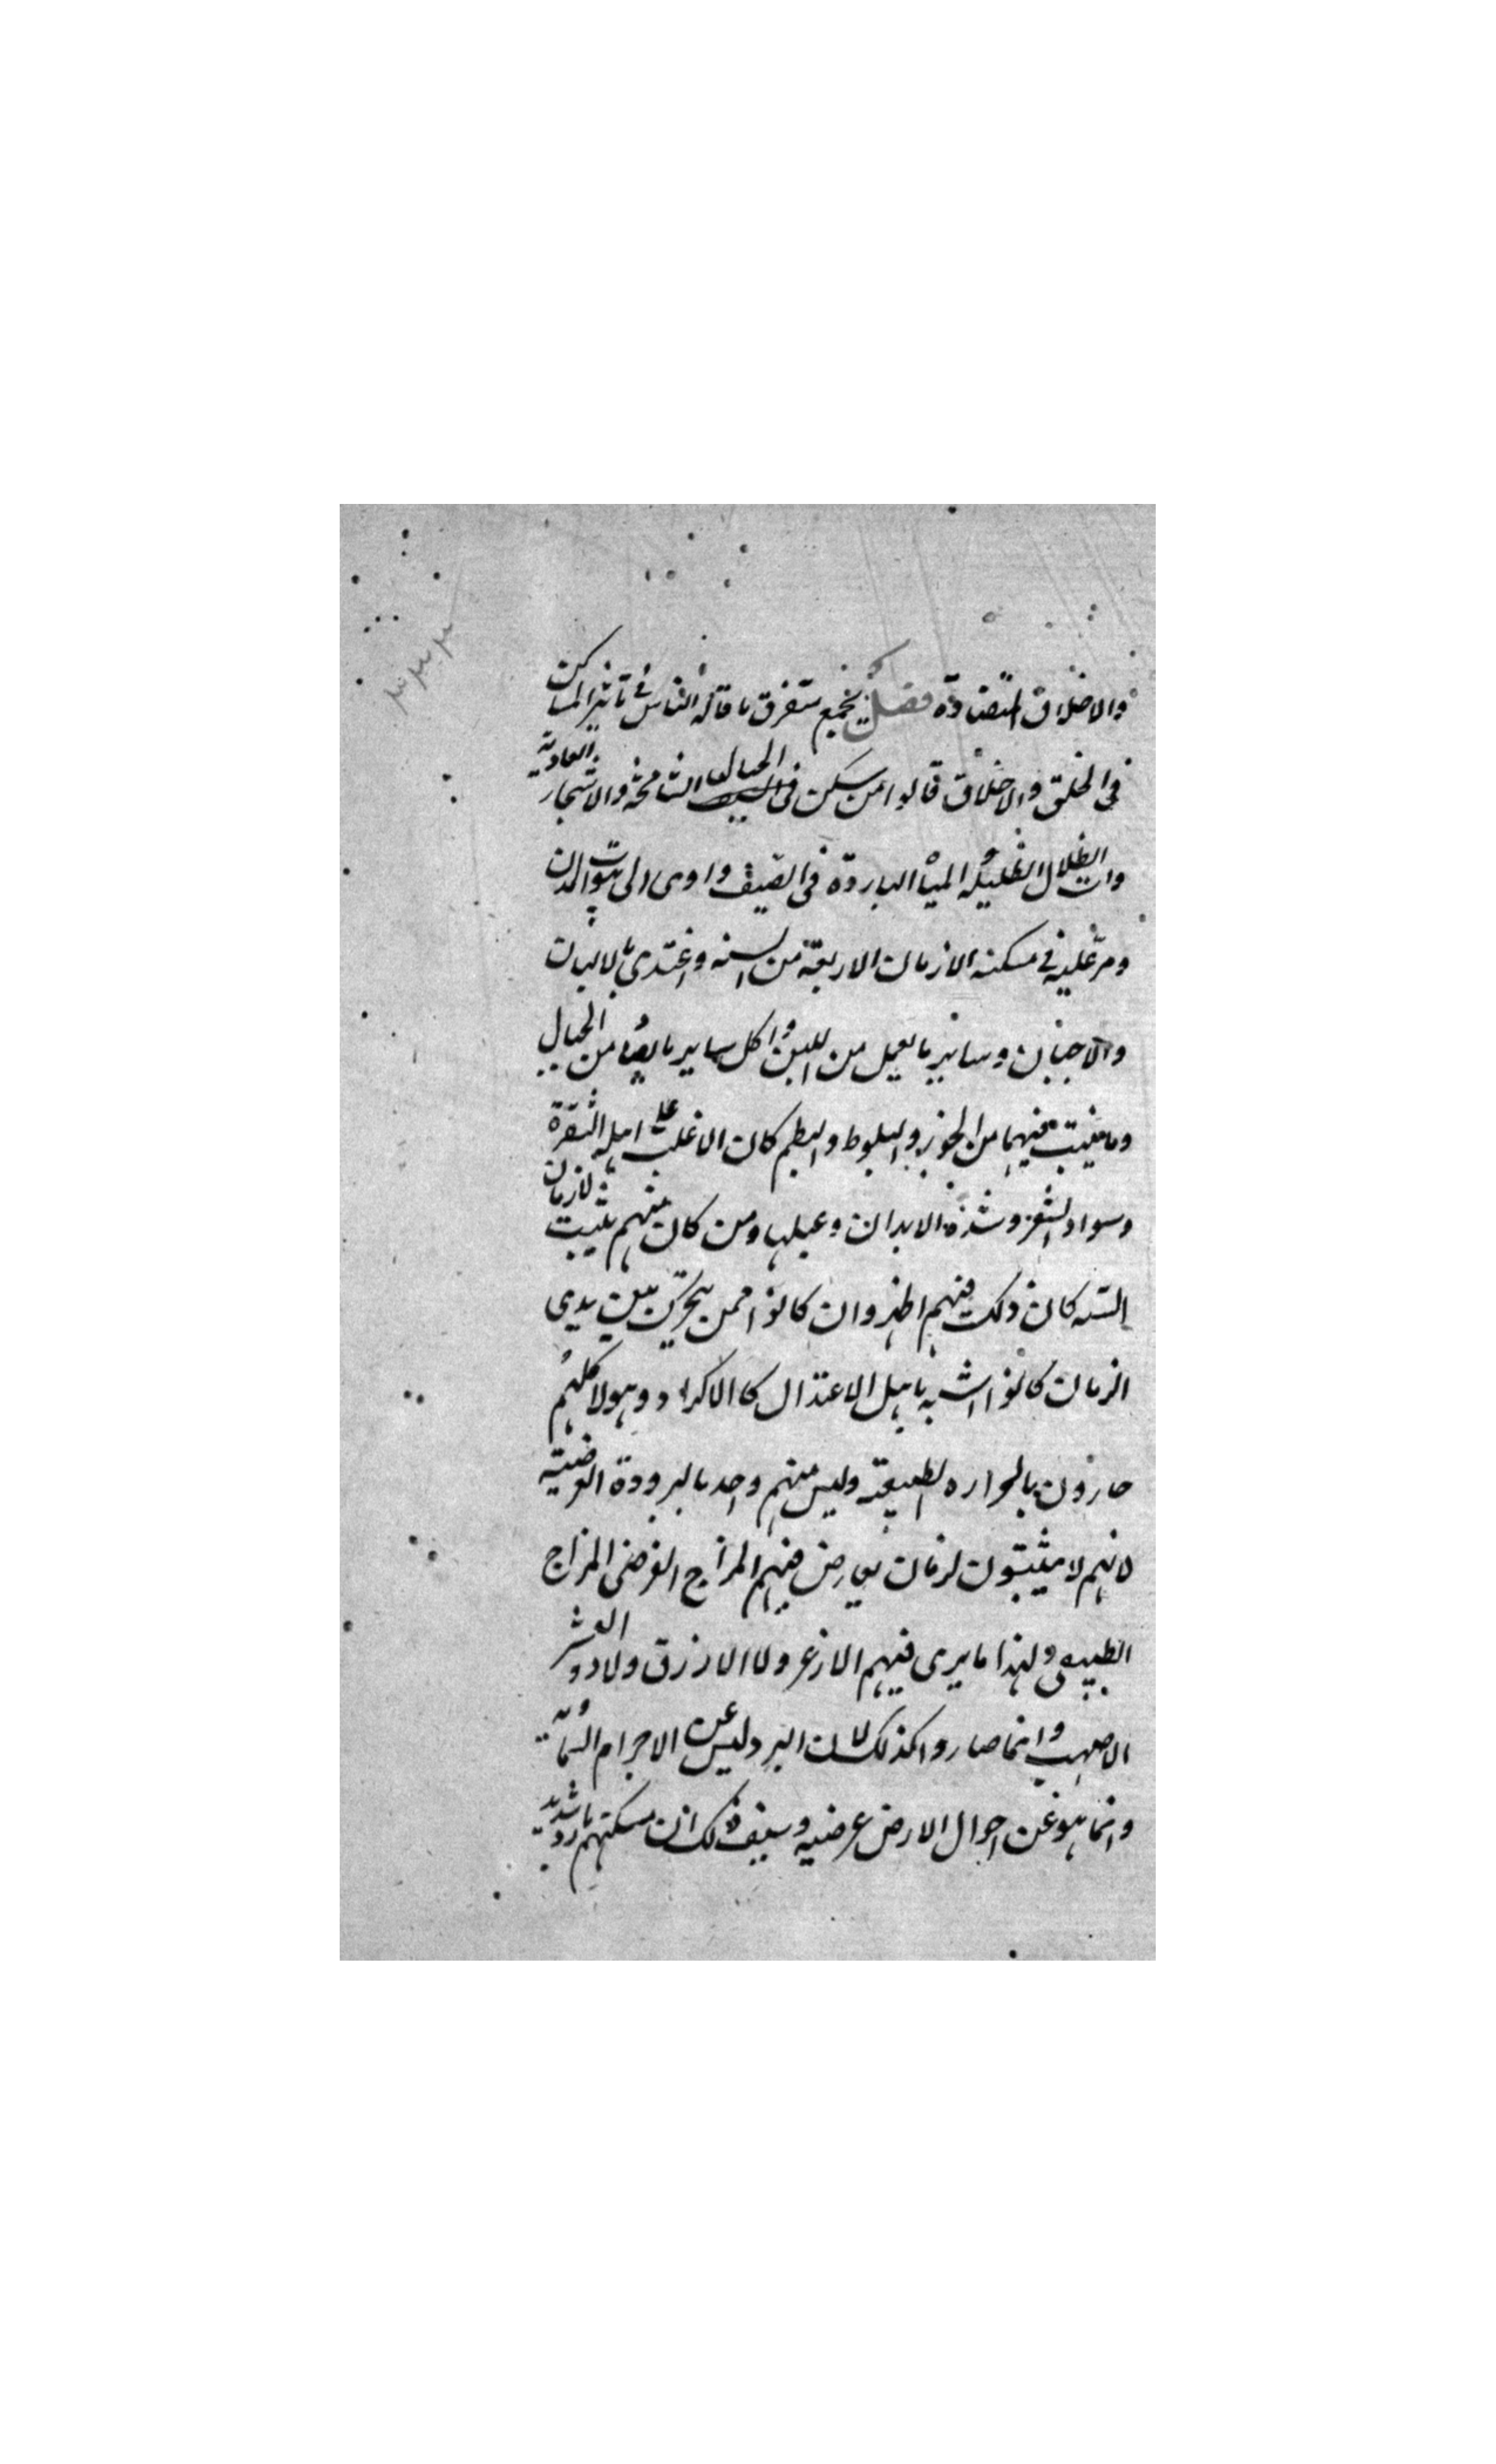 والاخلاق المتضادة فصل يجمع متفرق ما قاله الناس في تاثير المساكن
في الخلق والاخلاق قالوا من سكن في الجبال الشامخة والاشجار العادية
والظلال الظليله المياه الباردة في الصيف واوى الى بيوت المدن
ومر عليه في مسكنه الازمان الاربعة من السنه واغتدى بالالبان
والاجبان وساير ما يعمل من اللبن واكل ساير ما يصاد من الجبال
وما ينبت فيها من الجوز والبلوط والبطم كان الاغلب على اهله الشقرة
وسواد الشعر وشدة الابدان وعبلها ومن كان منهم يثبت لازمان
السنه كان ذلك فيهم اظهر وان كانوا ممن يتحرك بين يدى
الزمان كانوا اشبه باهل الاعتدال كالاكراد وهولا كلهم
حارون بالحراره الطبيعية وليس منهم واحد بالبرودة العرضية
لانهم لا يثبتون لزمان يعارض فيهم المزاج العرضى المزاج
الطبيعى ولهذا ما يرى فيهم الازعر ولا الازرق ولا ذو الشعر
الاصهب وانما صاروا كذلك لان البرد ليس عن الاجرام السمائية
وانما هو عن احوال الارض عرضيه وسبب ذلك ان مسكنهم بارد شديد